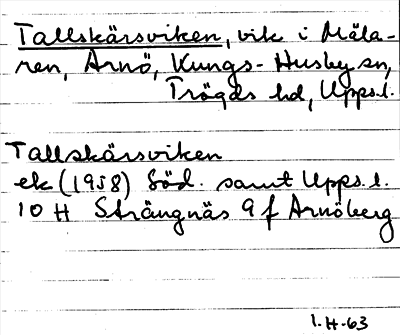 Tallskärsviken, vik i Mäla-
ren, Arnö, Kungs-Husby sn,
Trögds hd, Upps.l.
Tallskärsviken
ek (1958) Söd. samt Upps. l.
10 H Strängnäs 9 f Arnöberg
1.H-63